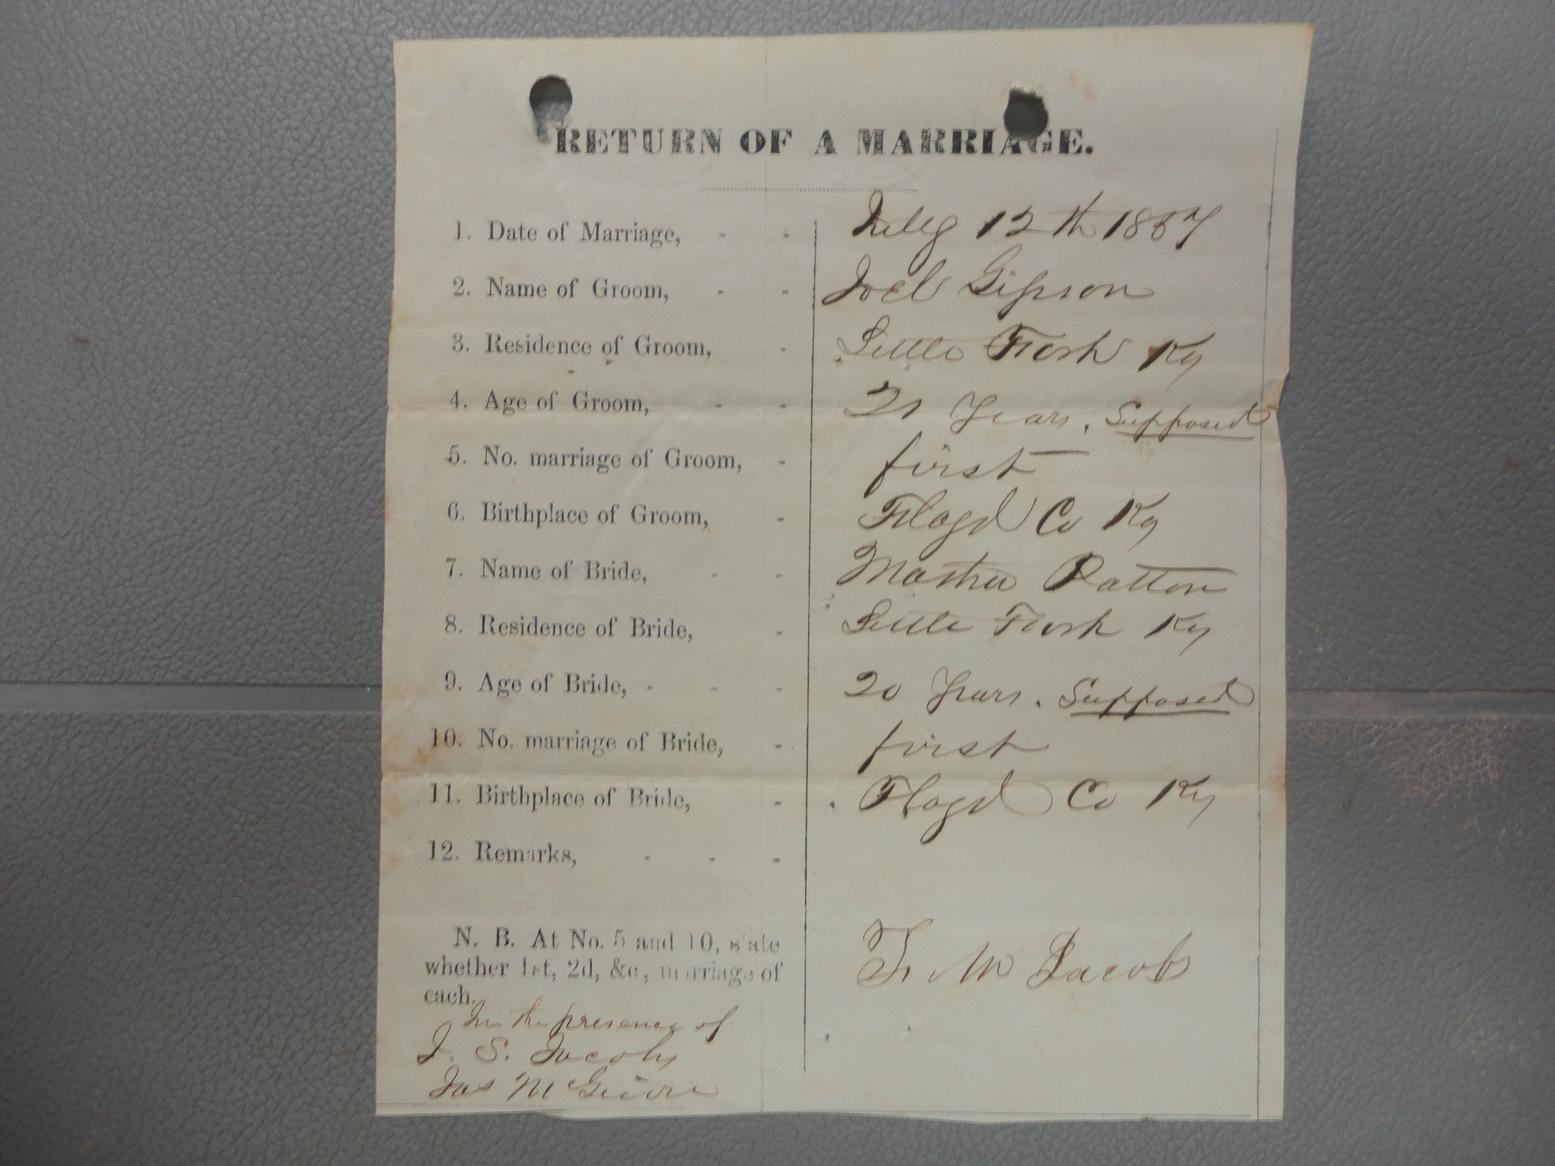 RETURN OF A MARRIAGE.
1. Date of Marriage, - - July 12th 1867
2. Name of Groom, - - Joel Gipson
3. Residence of Groom, - Little Fork Ky
4. Age of Groom, - - 21 Years. Supposed
5. No. marriage of Groom, - first
6. Birthplace of Groom, - Floyd Co Ky
7. Name of Bride, - - Martha Patton
8. Residence of Bride, - Little Fork Ky
9. Age of Bride, - - - 20 Years. Supposed
10. No. marriage of Bride, - first
11. Birthplace of Bride, - Floyd Co Ky
12. Remarks, - - -
N. B. At No. 5 and 10, state
whether 1st, 2d, &c., marriage of
each.
M Jacob
In the presence of
J. S. Jacobs
Jas McGuire